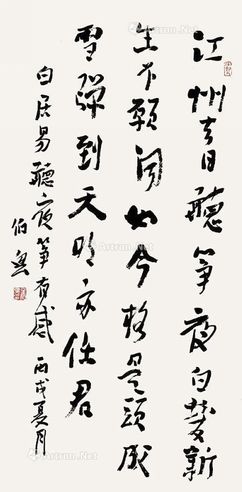 江州去日聽箏夜白髮新
生不願聞如今格是頭成
雪彈到天明亦任君
白居易聽夜箏有感 丙戌夏月
伯